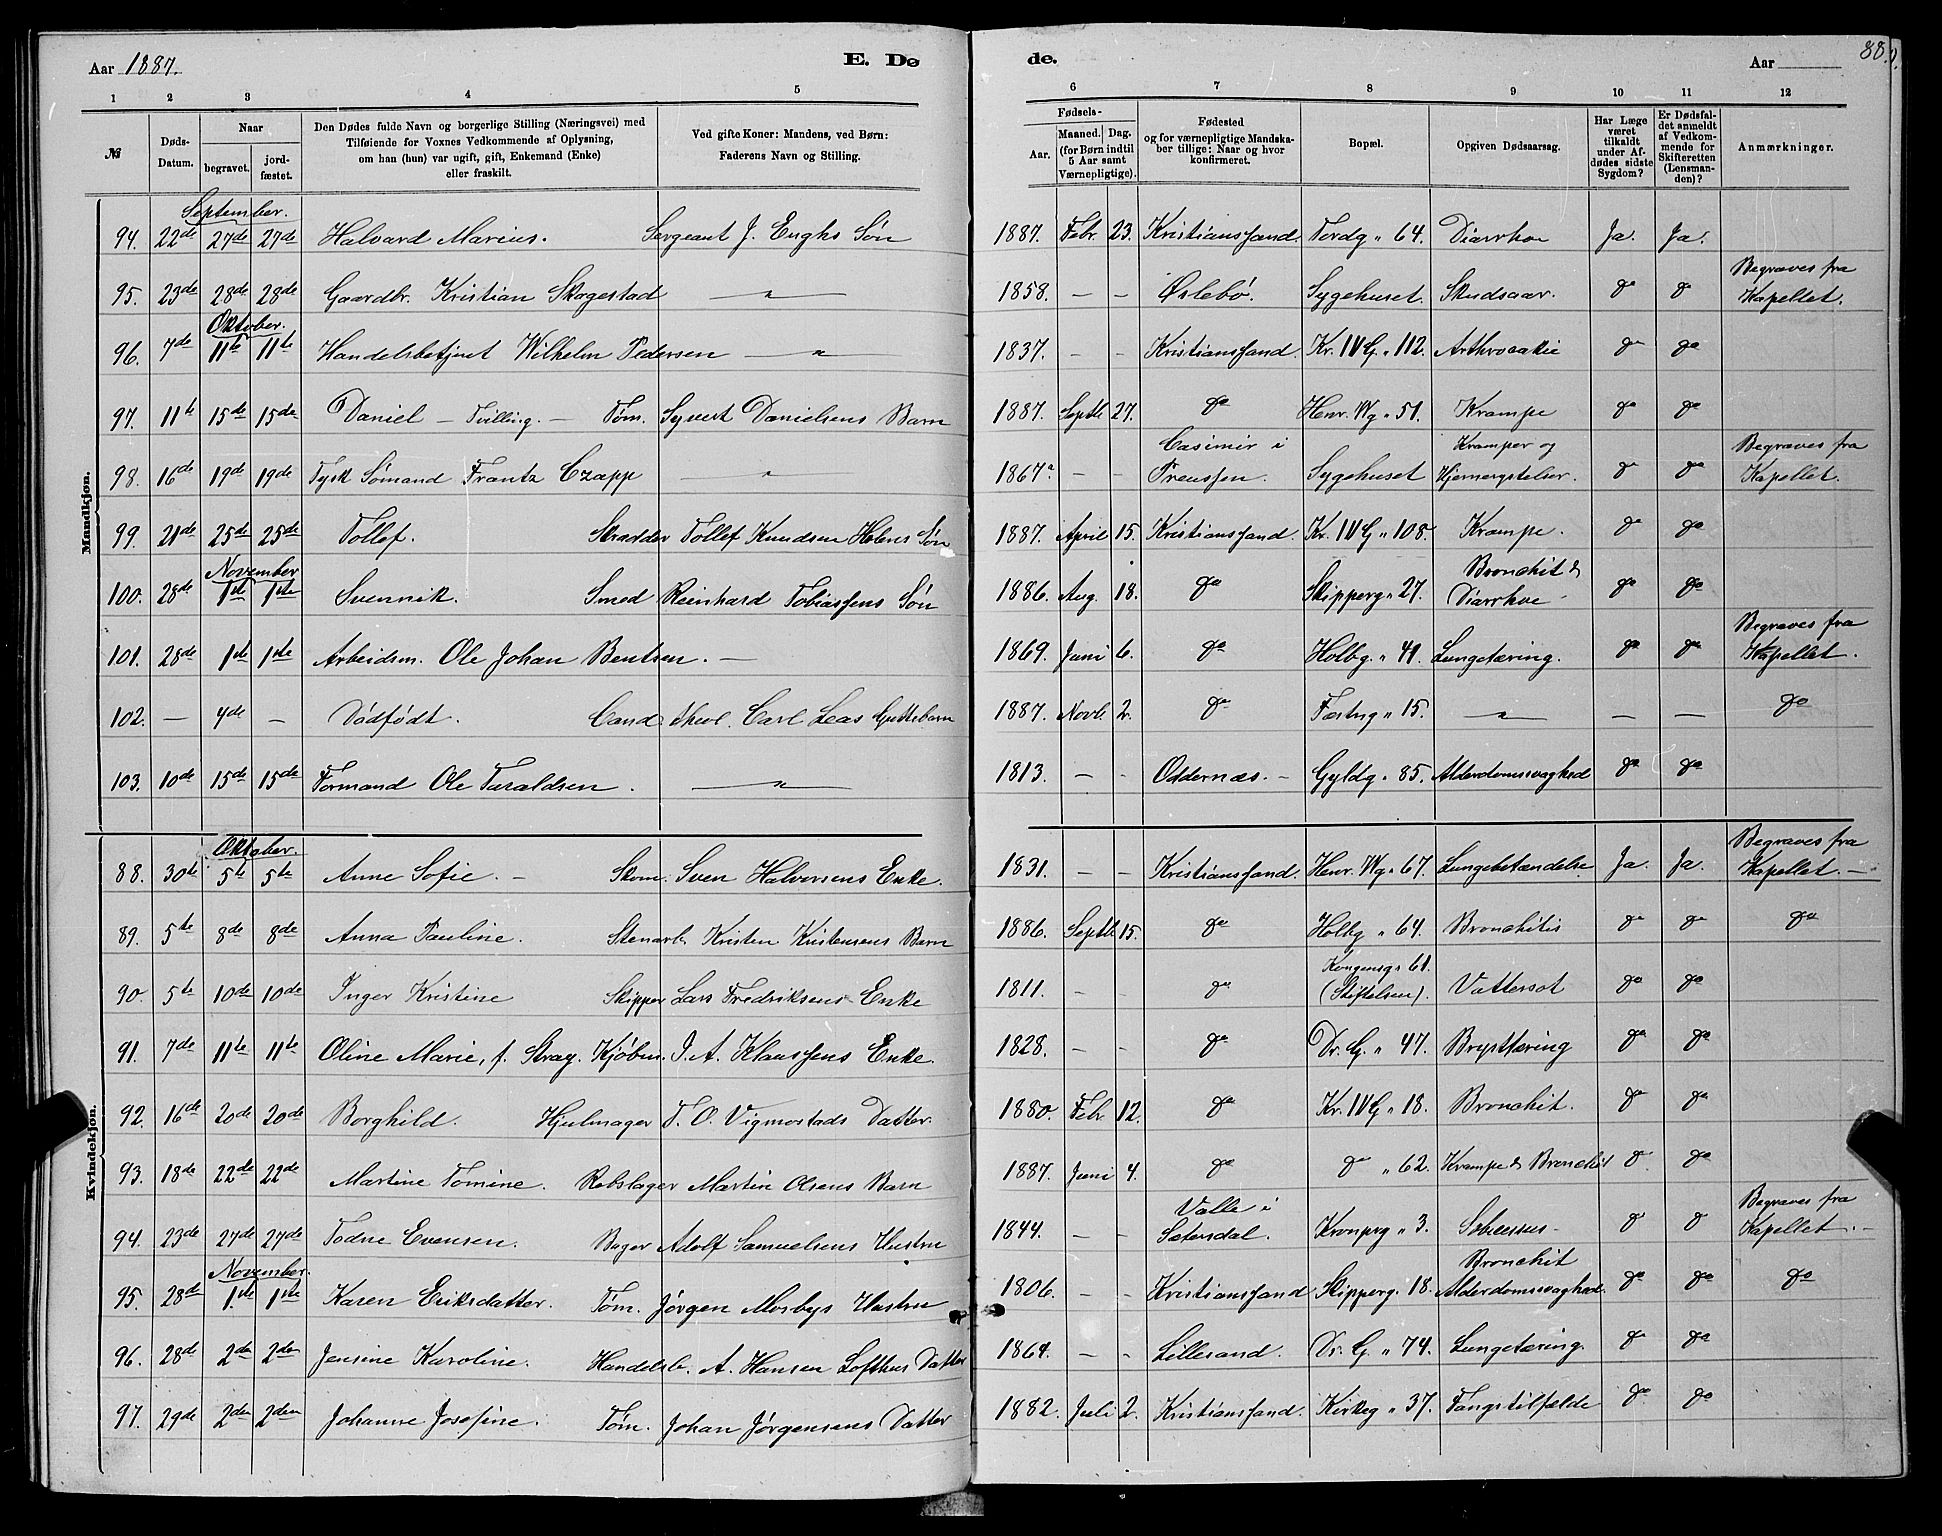 Aar 1887. E. Dø de. Aar 88.
1 2 3 4 5 6 7 8 9 10 11 12
№
Døds-Datum.
Naar
begravet.
jord-fæstet.
Den Dødes fulde Navn og borgerlige Stilling (Næringsvei) med
Tilføiende for Voxnes Vedkommende af Oplysning,
om han (hun) var ugift, gift, Enkemand (Enke)
eller fraskilt.
Ved gifte Koner: Mandens, ved Børn:
Faderens Navn og Stilling.
Fødsels-
Aar.
Maaned. Dag.
(for Børn indtil
5 Aar samt
Værnepligtige).
Fødested
og for værnepligtige Mandska-
ber tillige: Naar og hvor
konfirmeret.
Bopæl.
Opgiven Dødsaarsag.
Har Læge
været
tilkaldt
under Af-
dødes sidste
Sygdom?
Er Dødsfal-
det anmeldt
af Vedkom-
mende for
Skifteretten
(Lensman-
den)?
Anmærkninger.
Mandkjøn.
September.
94. 22de 27de 27de Halvard Marius. Sergeant J. Enghs Søn 1887. Febr. 23. Kristianssand. Tordg. " 64. Diarrhoe Ja. Ja.
Begraves fra
95. 23de 28de 28de Gaardbr. Kristian Skogestad — " — 1858. — — Øslebö. Sygehuset. Skudsaar. do do Kapellet.
Oktober.
96. 7de 11te 11te Handelsbetjent Wilhelm Pedersen — " 1837. — — Kristianssand. Kr. IV G. " 112. Arthrocakie do do
97. 11te 15de 15de Daniel — Tvilling. — Tøm. Syvert Danielsens Barn 1887. Septb. 27. do Henr. Wg. " 51. Krampe do do
Casimir i Kramper og Begraves fra
98. 16de 19de 19de Tysk Sømand Frantz Czapp — " — 1867. — — Preussen. Sygehuset Hjernerystelser. do do Kapellet.
99. 21de 25de 25de Tollef. Skrædder Tollef Knudsen Holens Søn 1887. April 15. Kristianssand. Kr. IV G " 108. Krampe. do do
November Bronchit &
100. 28de 1ste 1ste Svennik. Smed Reinhard Tobiassens Søn 1886. Aug. 18. do Skipperg. " 27. Diarrhoe do do
Begraves fra
101. 28de 1ste 1ste Arbeidsm. Ole Johan Bentsen. — 1869. Juni 6. do Holbg. " 41. Lungetæring. do do Kapellet.
102. — 4de — Dödfödt. Cand. theol. Carl Leas Guttebarn 1887. Novb. 2. do Fæstng " 15. — " — — — do
103. 10de 15de 15de Formand Ole Taraldsen. — " — 1813. — — Oddernæs. — Gyldg. " 85. Alderdomssvaghed do do
Kvindekjøn.
Oktober. Begraves fra
88. 30te 5te 5te Anne Sofie. — Skom. Sven Halvorsens Enke. 1831. — — Kristianssand. Henr. Wg " 67. Lungebetændelse Ja. Ja. Kapellet. —
89. 5te 8de 8de Anna Pauline. Stenarb. Kristen Kristensens Barn 1886. Septb 15. do Holbg " 64. Bronchitis do do do
Kongensg " 61.
90. 5te 10de 10de Inger Kristine Skipper Lars Fredriksens Enke 1811. — — do (Stiftelsen). Vattersot do do
91. 7de 11te 11te Oline Marie, f. Stray. Kjøbm. J. A. Klaussens Enke. 1828. — — do Dr. G. " 47. Brysttæring do do
92. 16de 20de 20de Borghild. Hjulmager T. O. Vigmostads Datter. 1880. Febr. 12. do Kr. IV G " 18. Bronchit. do do
93. 18de 22de 22de Martine Tomine. Rebslager Martin Olsens Barn 1887. Juni 4. do do " 62. Krampe & Bronchit do do
Valle i Begraves fra
94. 23de 27de 27de Todne Evensen. Bager Adolf Samuelsens Hustru 1844. — — Sætersdal. Kronprg " 3. do do Kapellet. —
November. Bronchit
95. 28de 1ste 1ste Karen Eriksdatter. Tøm. Jørgen Mosbys Hustru 1806. — — Kristianssand Skipperg. 18. Alderdomssvaghed. do do do
96. 28de 2den 2den Jensine Karoline. Handelsb. A. Hansen Lofthus Datter 1864. — — Lillesand. Dr. G. " 74. Lungetæring. do do
97. 29de 2den 2den Johanne Josefine. Tøm. Johan Jørgensens Datter 1882. Juli 2. Kristianssand. Kirkeg " 37. Fangstilfælde do do